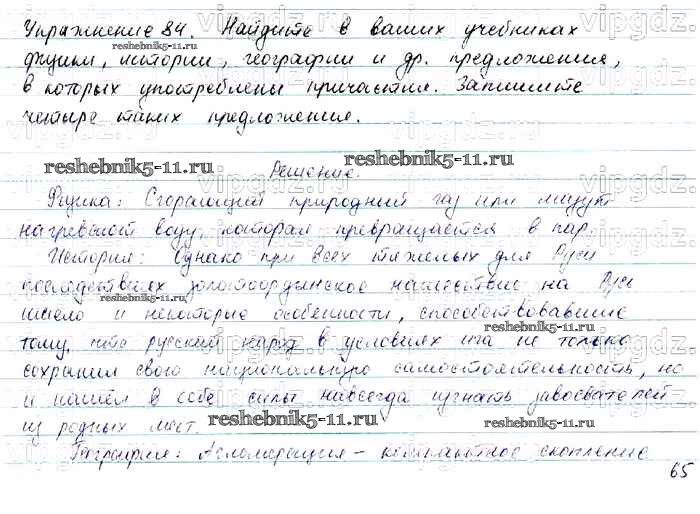 Упражнение 84. Найдите в ваших учебниках
физики, истории, географии и др. предложения,
в которых употреблены причастия. Запишите
четыре таких предложения.
Решение.
Физика: Сгорающий природный газ или мазут
нагревают воду, которая превращается в пар.
История: Однако при всех тяжелых для Руси
последствиях золотоордынское нашествие на Русь
имело и некоторые особенности, способствовавшие
тому, что русский народ в условиях ига не только
сохранил свою национальную самостоятельность, но
и нашел в себе силы навсегда изгнать завоевателей
из родных мест.
География: Агломерация – компактное скопление
65
reshebnik5-11.ru
reshebnik5-11.ru
reshebnik5-11.ru
reshebnik5-11.ru
reshebnik5-11.ru
reshebnik5-11.ru
reshebnik5-11.ru
vipgdz.com